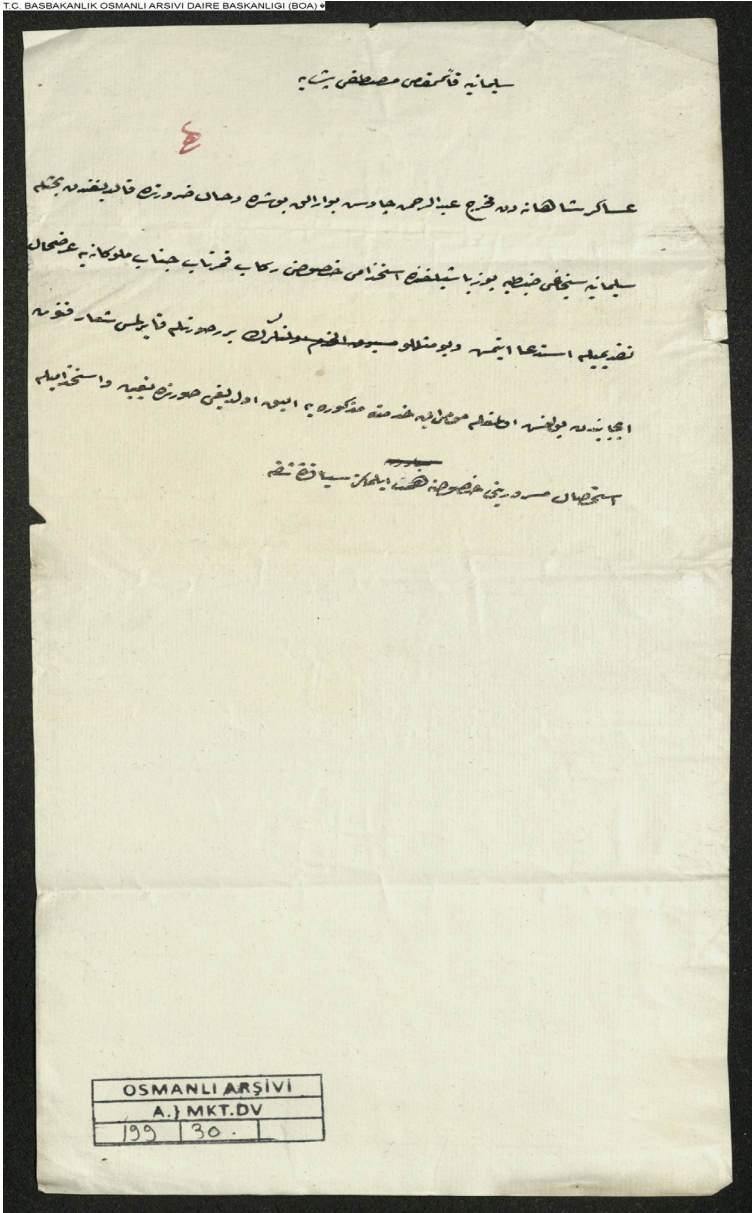 T.C. BASBAKANLIK OSMANLI ARSIVI DAIRE BASKANLIGI (BOA)
سليمانيه قائممقامى مصطفى پاشايه
عساكر شاهانه دن مخرج عبدالرحمن چاوش بو ارالق بوشده و حال ضرورتده قالديغندن بحثله
سليمانيه سنجاغى ضبطيه يوزباشيلغنده استخدامى خصوصنى ركاب قمرتاب جناب ملوكانه يه عرضحال
تقديميله استدعا ايتمش و بومثللو بر صورتله قايرلمسى شعار
ايجابندن بولنمش اولمغله موم‌اليهك خدمت مذكوره يه اليق اولديغى صورتده تعيين و استخداميله
استحصال مسروريتى خصوصنه همت ايلمكز سياقنده شقه
OSMANLI ARŞİVİ
A.} MKT.DV
199 30